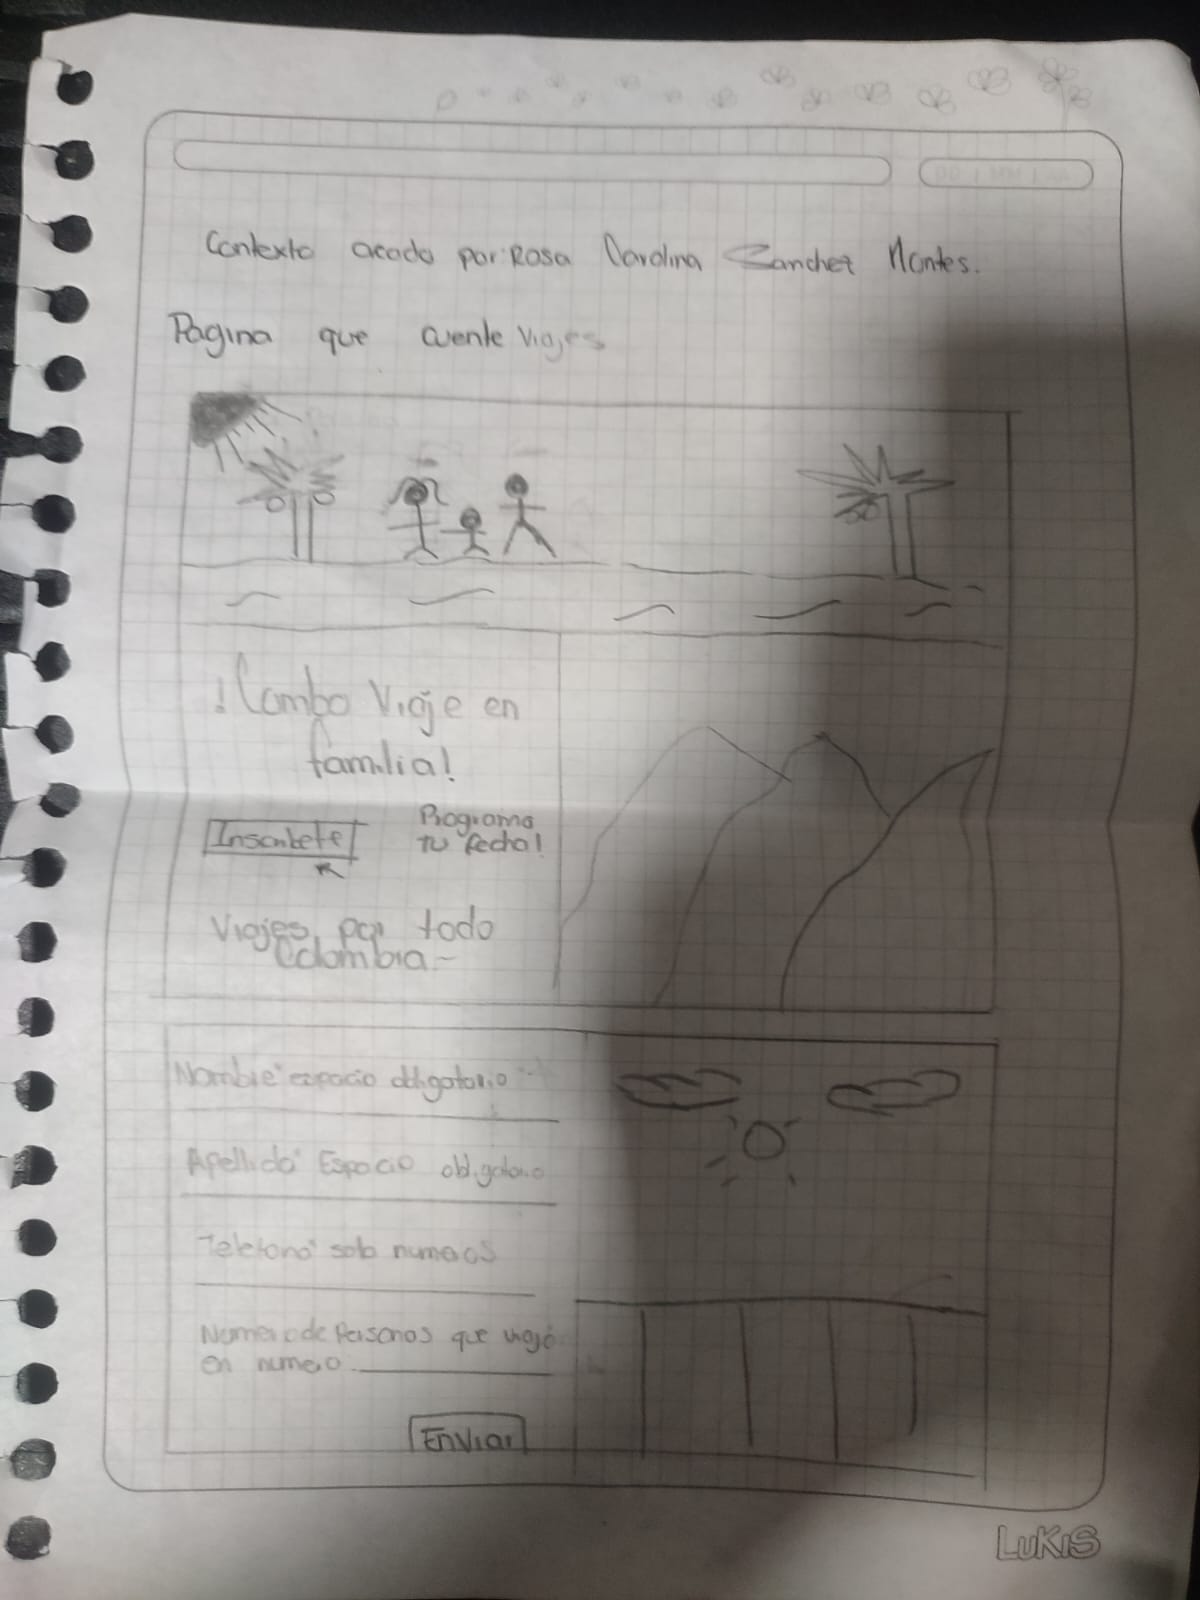 Contexto acado por: Rosa Carolina Sanchez Montes.
Pagina que cuente Viajes
¡Combo Viaje en
familia!
Inscribete
Programa
tu fecha!
Viajes por todo
Colombia
Nombre "espacio obligatorio"
Apellido" Espacio obligatorio
Telefono" solo numeros
Numero de Personas que viaja
en numero
Enviar
LUKIS